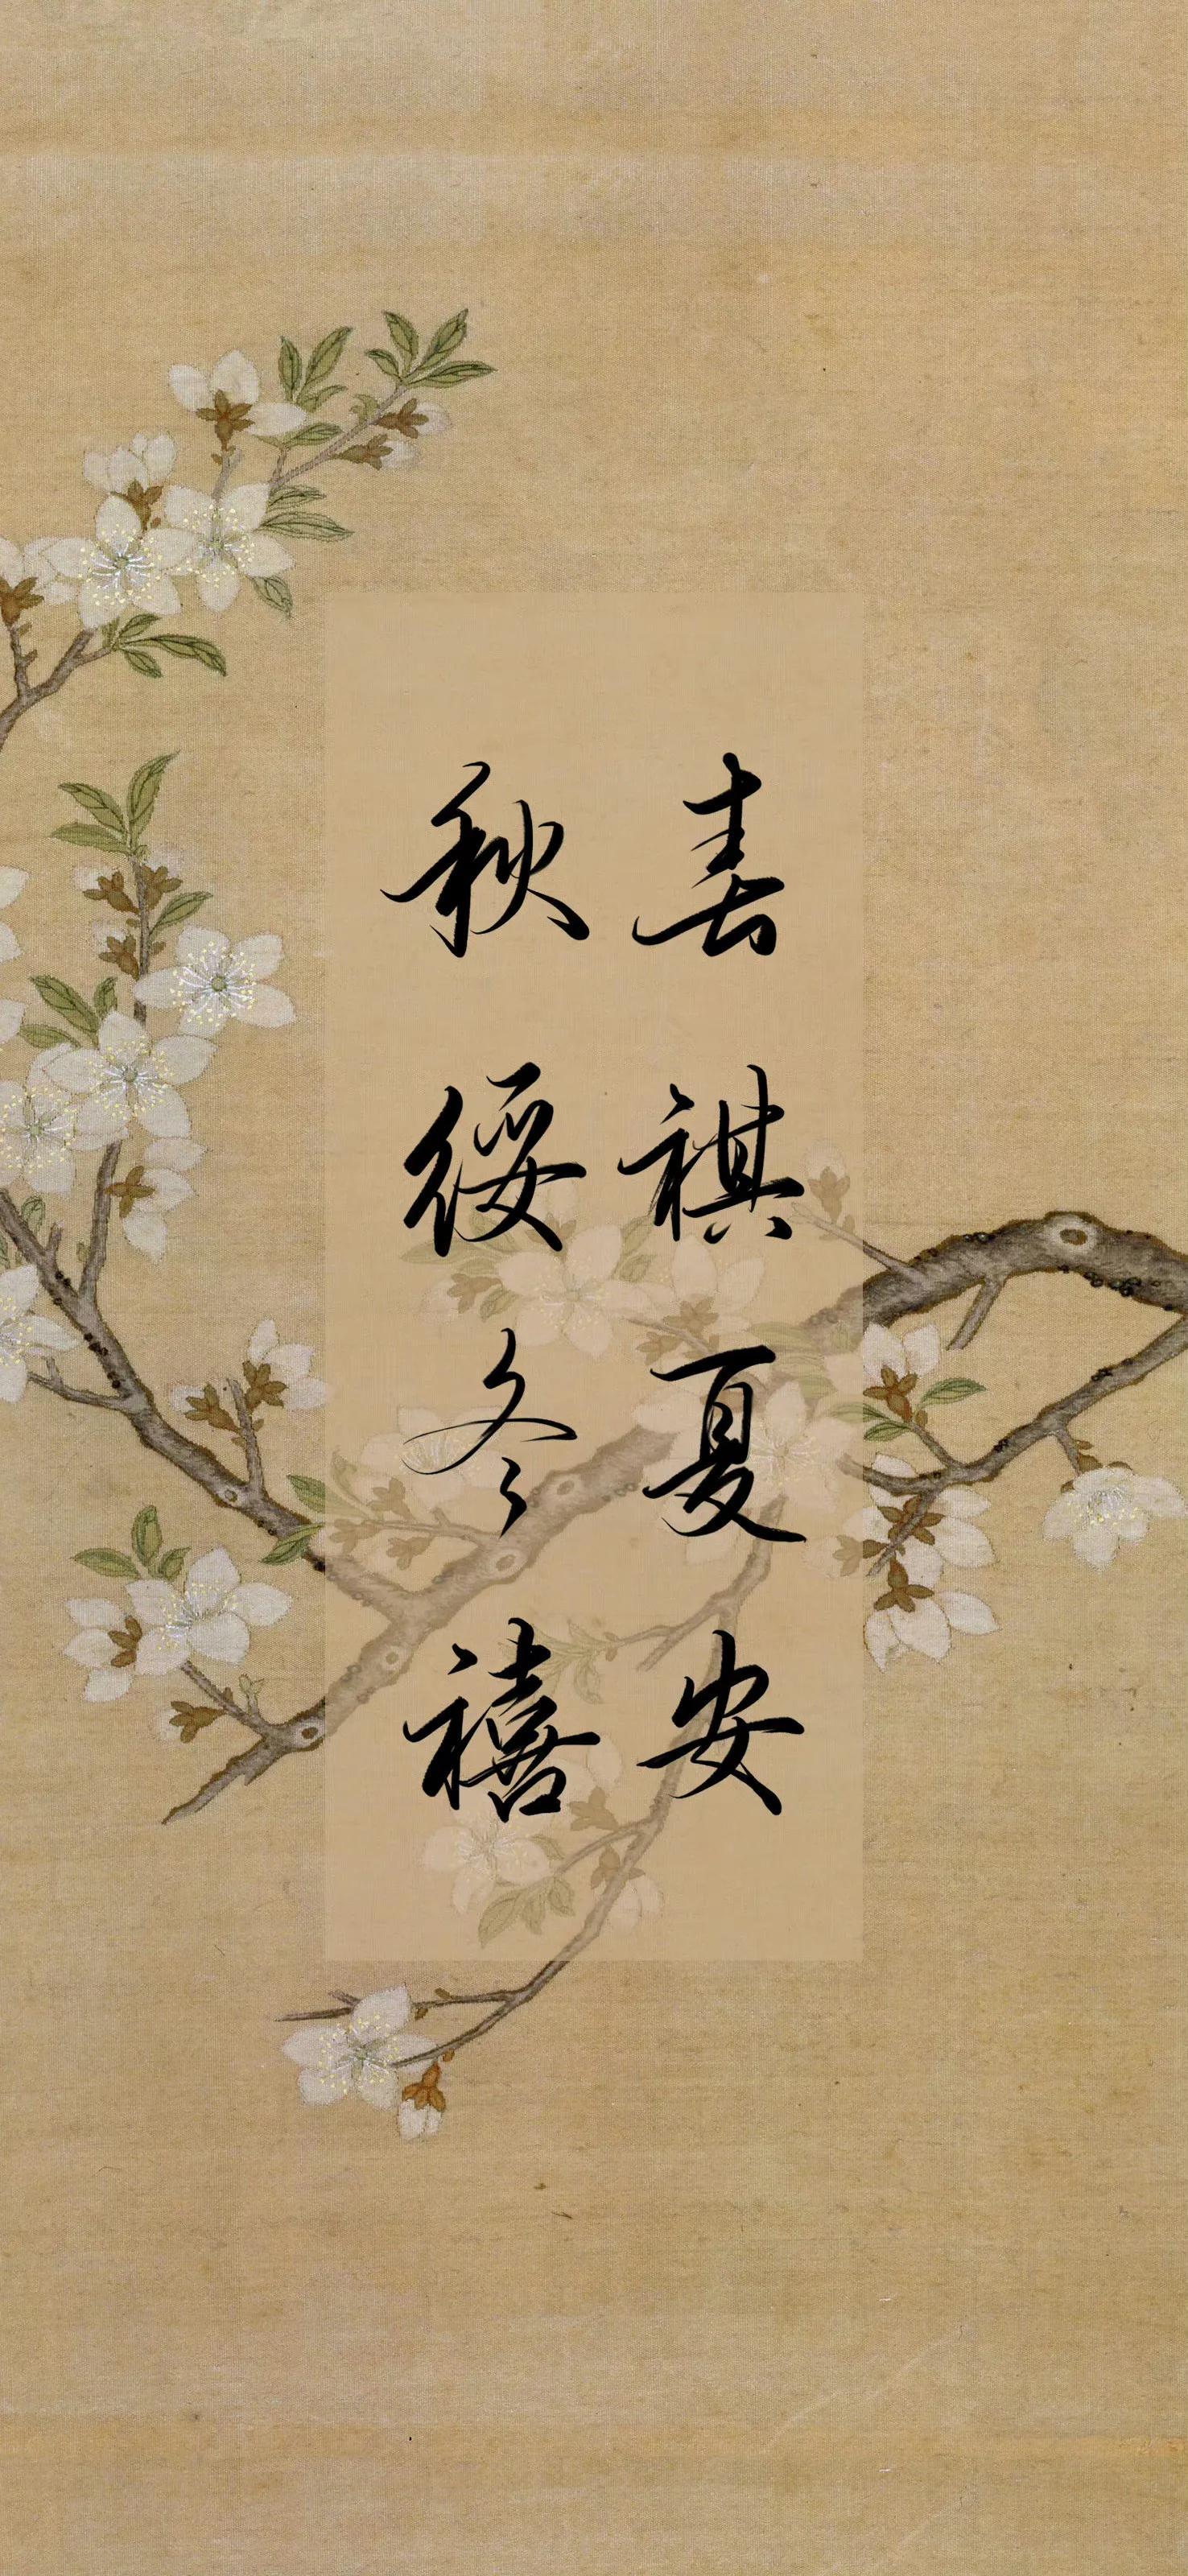 春祺夏安
秋綏冬禧